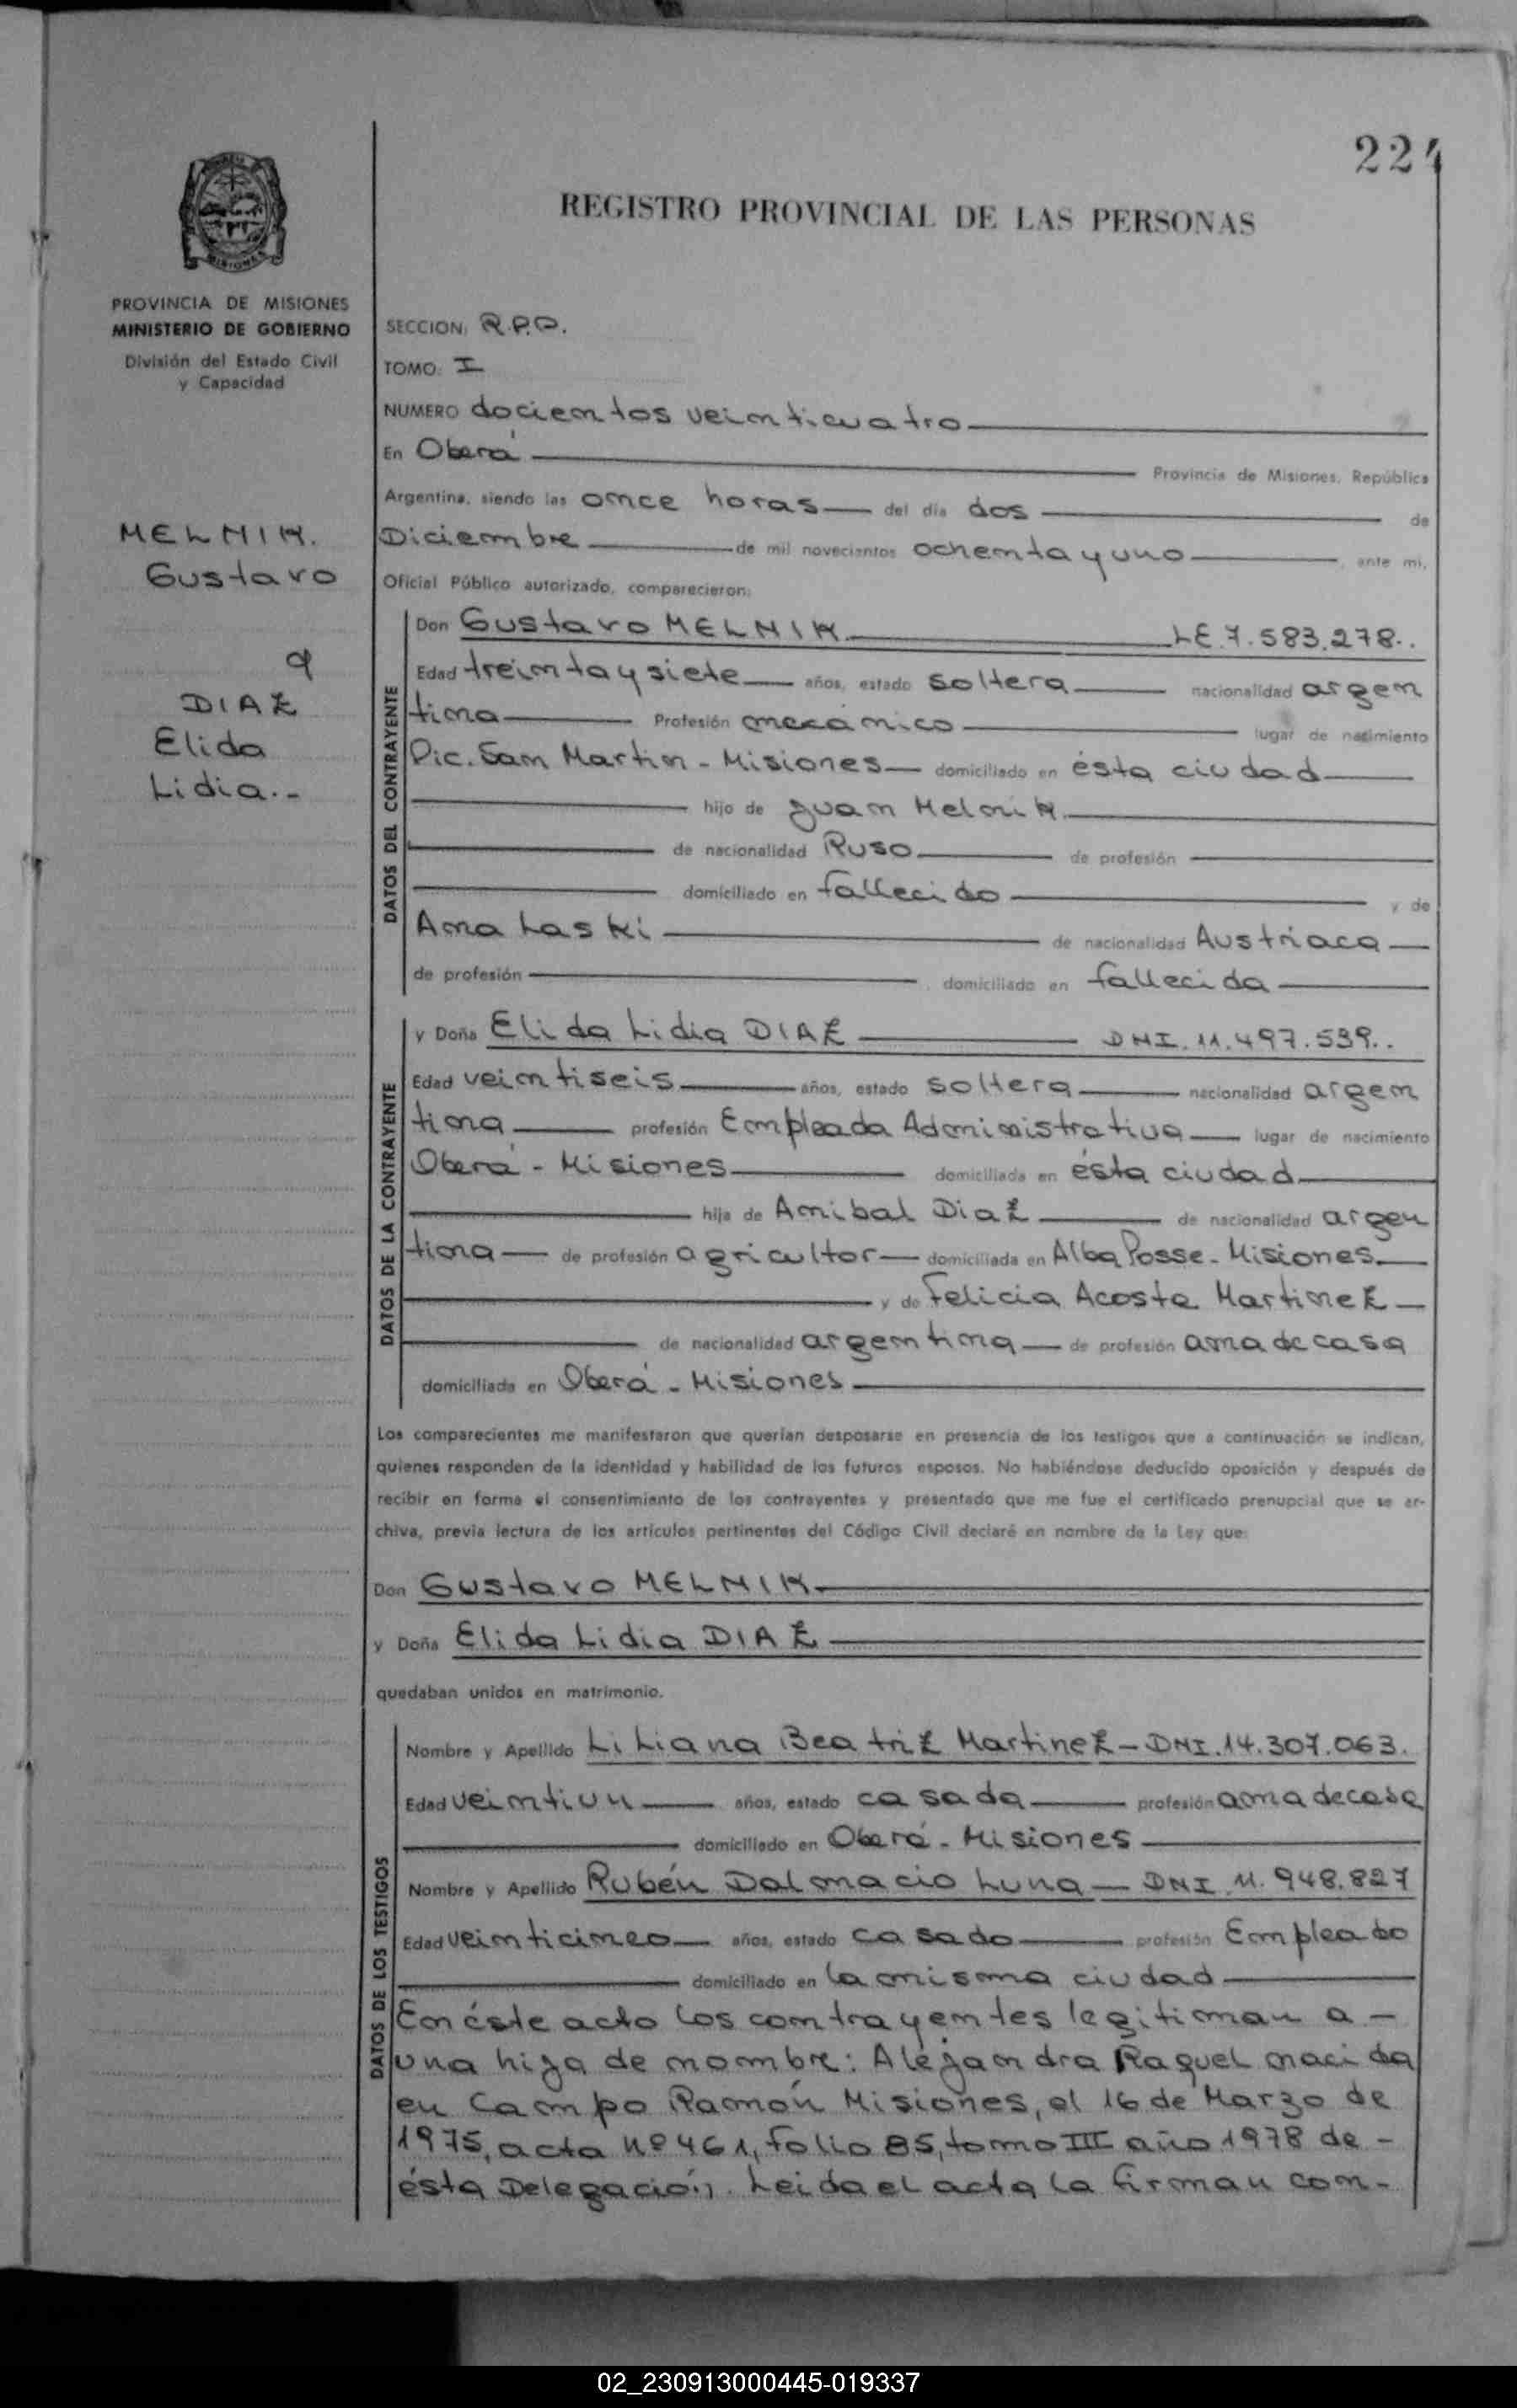 224
REGISTRO PROVINCIAL DE LAS PERSONAS
MISIONES
PROVINCIA DE MISIONES
MINISTERIO DE GOBIERNO
División del Estado Civil
y Capacidad
MELNIK.
Gustavo
y
DIAZ
Elida
Lidia.-
SECCION: R.P.O.
TOMO: I
NUMERO docientos veinticuatro
En Oberá Provincia de Misiones, República
Argentina, siendo las once horas del día dos de
Diciembre de mil novecientos ochenta y uno, ante mi,
Oficial Público autorizado, comparecieron:
DATOS DEL CONTRAYENTE
Don Gustavo MELNIK. LE.7.583.278..
Edad treinta y siete años, estado soltera nacionalidad argen
tina Profesión mecánico lugar de nacimiento
Pic. San Martin - Misiones domiciliado en ésta ciudad
hijo de Juan Melnik.
de nacionalidad Ruso de profesión
domiciliado en fallecido y de
Ana Laski de nacionalidad Austriaca
de profesión, domiciliada en fallecida
DATOS DE LA CONTRAYENTE
y Doña Elida Lidia DIAZ DNI.11.497.539..
Edad veintiseis años, estado soltera nacionalidad argen
tina profesión Empleada Administrativa lugar de nacimiento
Oberá - Misiones domiciliada en ésta ciudad
hija de Anibal Diaz de nacionalidad argen
tina de profesión agricultor domiciliada en Alba Posse - Misiones
y de Felicia Acosta Martinez
de nacionalidad argentina de profesión ama de casa
domiciliada en Oberá - Misiones
Los comparecientes me manifestaron que querían desposarse en presencia de los testigos que a continuación se indican,
quienes responden de la identidad y habilidad de los futuros esposos. No habiéndose deducido oposición y después de
recibir en forma el consentimiento de los contrayentes y presentado que me fue el certificado prenupcial que se ar-
chiva, previa lectura de los artículos pertinentes del Código Civil declaré en nombre de la Ley que:
Don Gustavo MELNIK.
y Doña Elida Lidia DIAZ
quedaban unidos en matrimonio.
DATOS DE LOS TESTIGOS
Nombre y Apellido Liliana Beatriz Martinez - DNI.14.307.063.
Edad veintiun años, estado casada profesión ama de casa
domiciliado en Oberá - Misiones
Nombre y Apellido Rubén Dalmacio Luna - DNI.11.948.827
Edad veinticinco años, estado casado profesión Empleado
domiciliado en la misma ciudad
En éste acto los contrayentes legitiman a -
una hija de nombre: Alejandra Raquel nacida
en Campo Ramón Misiones, el 16 de Marzo de
1975, acta nº 461, folio 85, tomo III año 1978 de -
ésta Delegación. Leida el acta la firman con-
02_230913000445-019337